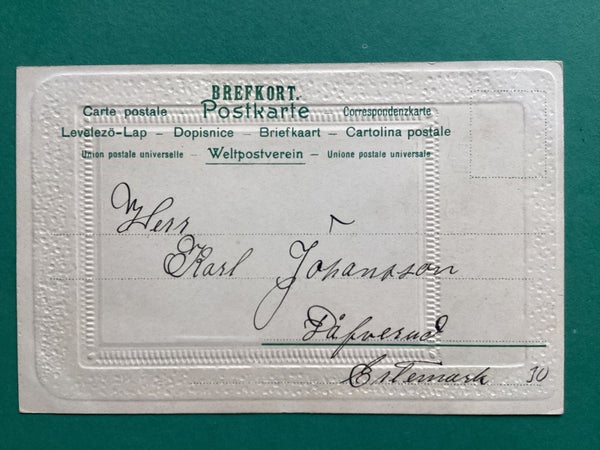 BREFKORT.
Carte postale Postkarte Correspondenzkarte
Levelező-Lap – Dopisnice – Briefkaart – Cartolina postale
Union postale universelle – Weltpostverein – Unione postale universale
Herr
Karl Johansson
Påfverud
Östemark
30